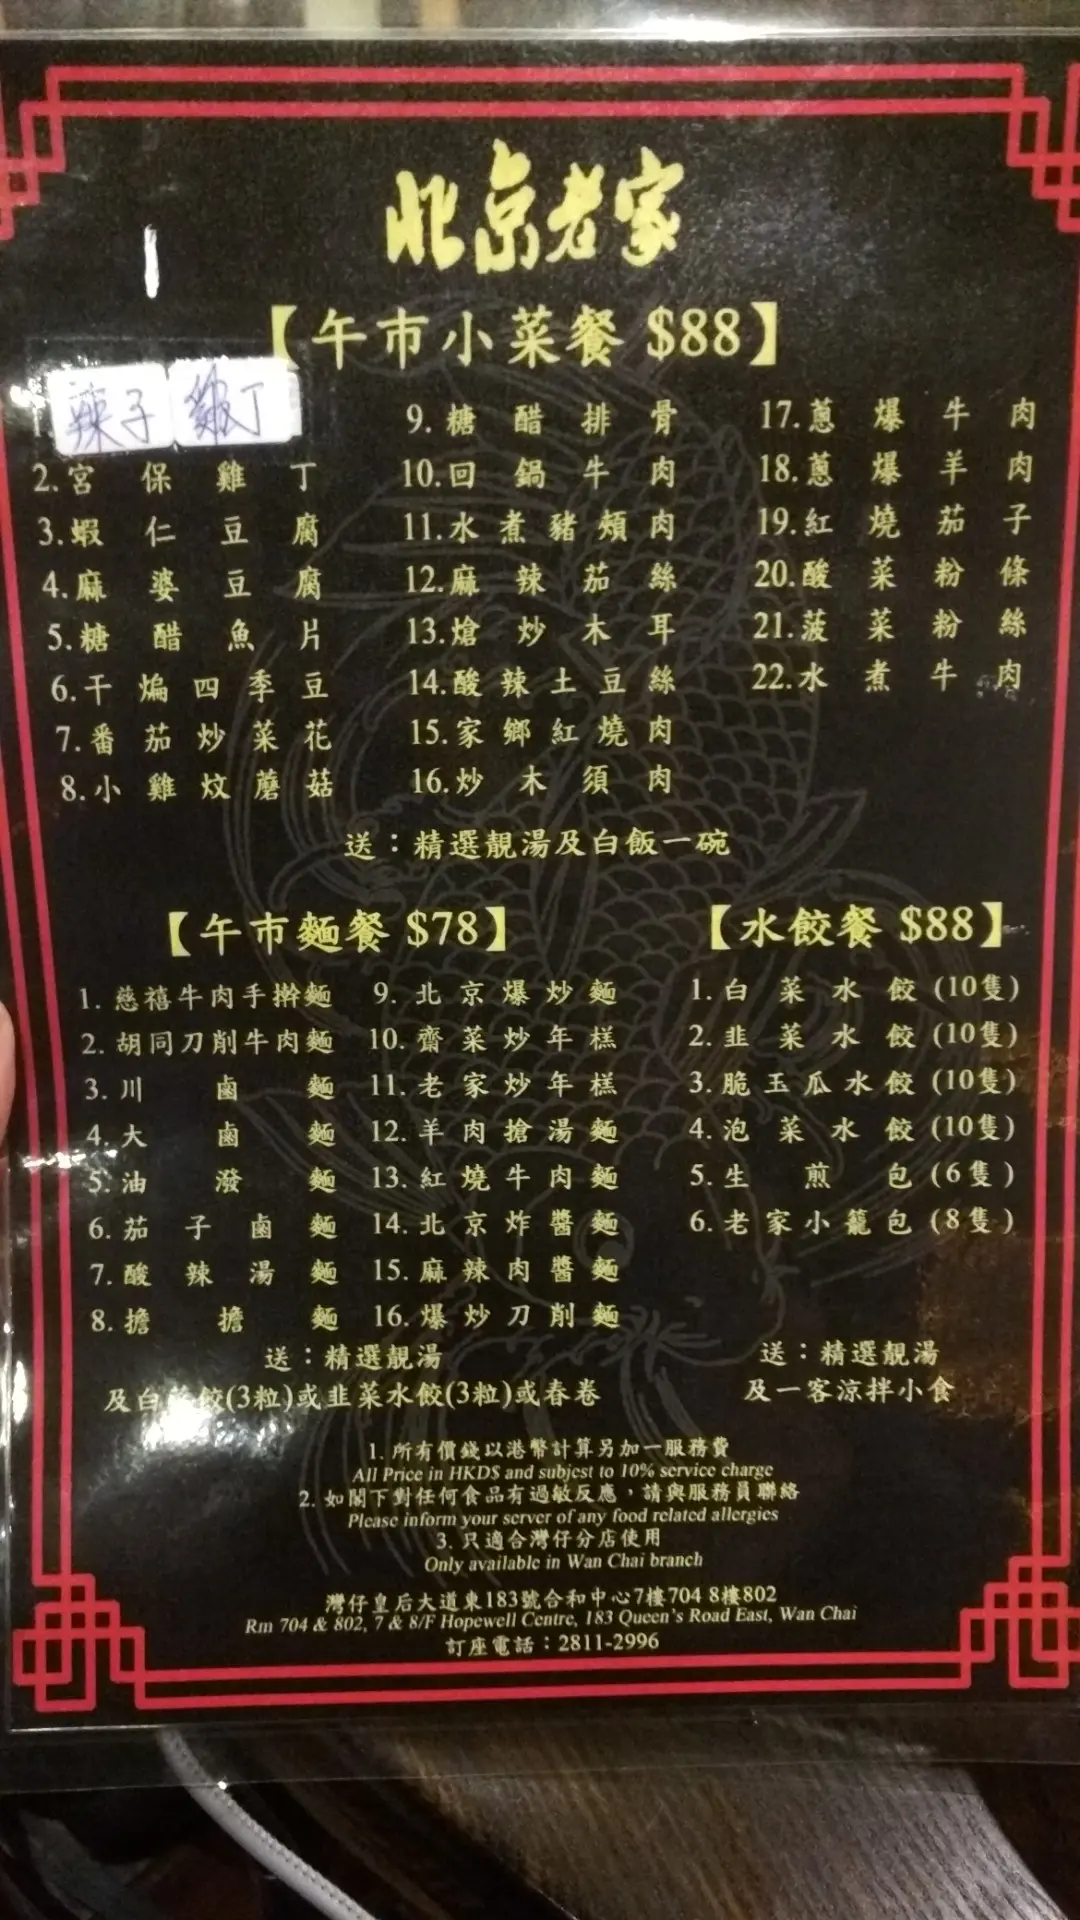 北京老家
【午市小菜餐 $88】
1. 辣子雞丁
2.宮保雞丁
3.蝦仁豆腐
4.麻婆豆腐
5.糖醋魚片
6.干煸四季豆
7.番茄炒菜花
8.小雞炆蘑菇
9.糖醋排骨
10.回鍋牛肉
11.水煮豬頰肉
12.麻辣茄絲
13.熗炒木耳
14.酸辣土豆絲
15.家鄉紅燒肉
16.炒木須肉
17.蔥爆牛肉
18.蔥爆羊肉
19.紅燒茄子
20.酸菜粉條
21.菠菜粉絲
22.水煮牛肉
送：精選靚湯及白飯一碗
【午市麵餐 $78】
1. 慈禧牛肉手擀麵
2. 胡同刀削牛肉麵
3. 川鹵麵
4. 大鹵麵
5. 油潑麵
6. 茄子鹵麵
7. 酸辣湯麵
8. 擔擔麵
9. 北京爆炒麵
10. 齋菜炒年糕
11. 老家炒年糕
12. 羊肉搶湯麵
13. 紅燒牛肉麵
14. 北京炸醬麵
15. 麻辣肉醬麵
16. 爆炒刀削麵
送：精選靚湯
及白菜餃(3粒)或韭菜水餃(3粒)或春卷
【水餃餐 $88】
1. 白菜水餃(10隻)
2. 韭菜水餃(10隻)
3. 脆玉瓜水餃(10隻)
4. 泡菜水餃(10隻)
5. 生煎包(6隻)
6. 老家小籠包(8隻)
送：精選靚湯
及一客涼拌小食
1. 所有價錢以港幣計算另加一服務費
All Price in HKD$ and subjest to 10% service charge
2. 如閣下對任何食品有過敏反應，請與服務員聯絡
Please inform your server of any food related allergies
3. 只適合灣仔分店使用
Only available in Wan Chai branch
灣仔皇后大道東183號合和中心7樓704 8樓802
Rm 704 & 802, 7 & 8/F Hopewell Centre, 183 Queen's Road East, Wan Chai
訂座電話：2811-2996